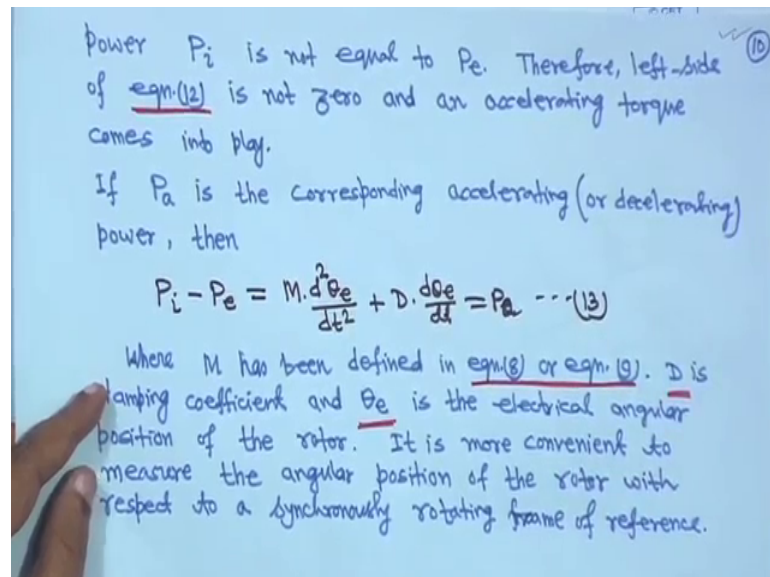 10
power Pi is not equal to Pe. Therefore, left-side
of eqn.(12) is not zero and an accelerating torque
comes into play.
If Pa is the corresponding accelerating (or decelerating)
power, then
Pi - Pe = M. d²θe/dt² + D. dθe/dt = Pa ---(13)
Where M has been defined in eqn.(8) or eqn.(9). D is
damping coefficient and θe is the electrical angular
position of the rotor. It is more convenient to
measure the angular position of the rotor with
respect to a synchronously rotating frame of reference.